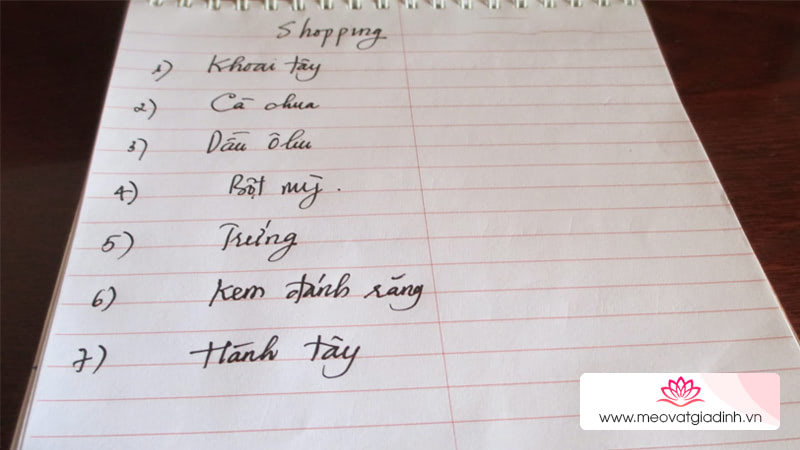 Shopping
1) Khoai tây
2) Cà chua
3) Dầu ôliu
4) Bột mỳ.
5) Trứng
6) Kem đánh răng
7) Hành tây
www.meovatgiadinh.vn